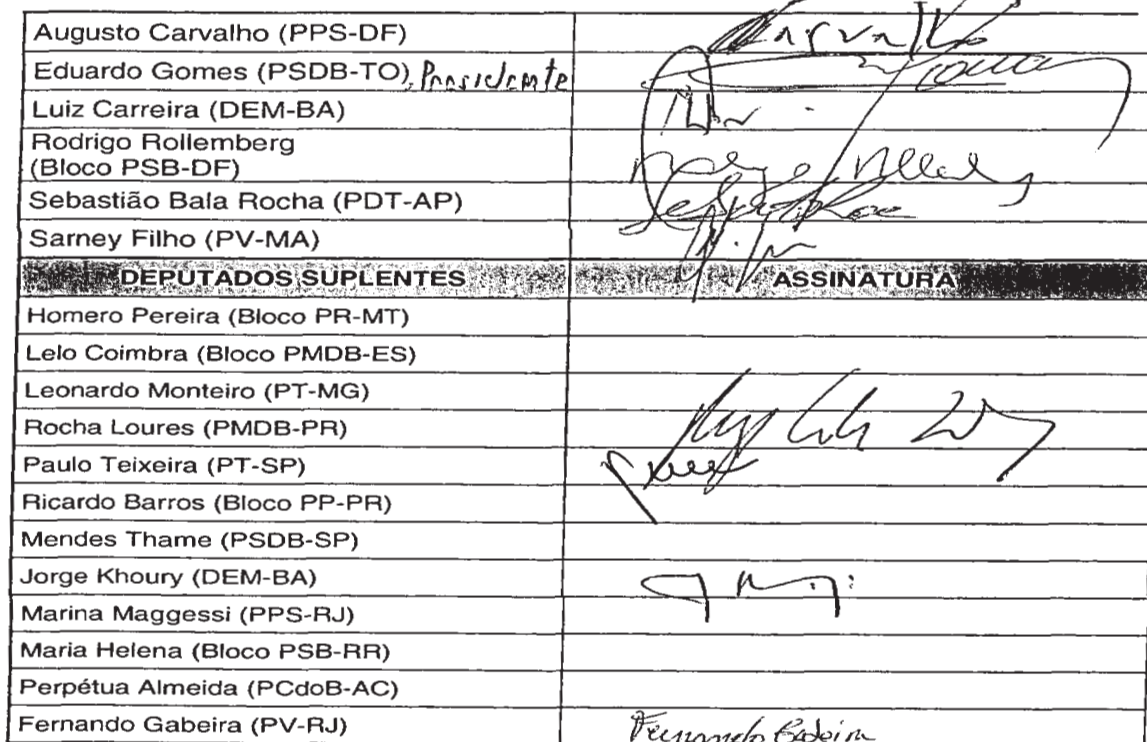 Augusto Carvalho (PPS-DF)
Eduardo Gomes (PSDB-TO), Presidente
Luiz Carreira (DEM-BA)
Rodrigo Rollemberg
(Bloco PSB-DF)
Sebastião Bala Rocha (PDT-AP)
Sarney Filho (PV-MA)
DEPUTADOS SUPLENTES ASSINATURA
Homero Pereira (Bloco PR-MT)
Lelo Coimbra (Bloco PMDB-ES)
Leonardo Monteiro (PT-MG)
Rocha Loures (PMDB-PR)
Paulo Teixeira (PT-SP)
Ricardo Barros (Bloco PP-PR)
Mendes Thame (PSDB-SP)
Jorge Khoury (DEM-BA)
Marina Maggessi (PPS-RJ)
Maria Helena (Bloco PSB-RR)
Perpétua Almeida (PCdoB-AC)
Fernando Gabeira (PV-RJ) Fernando Gabeira